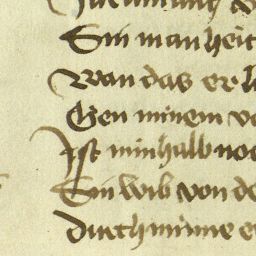 Sin manheit
Wan das er l
Gen minem v
Ist min halb noc
Sin wib von de
Durch minne e